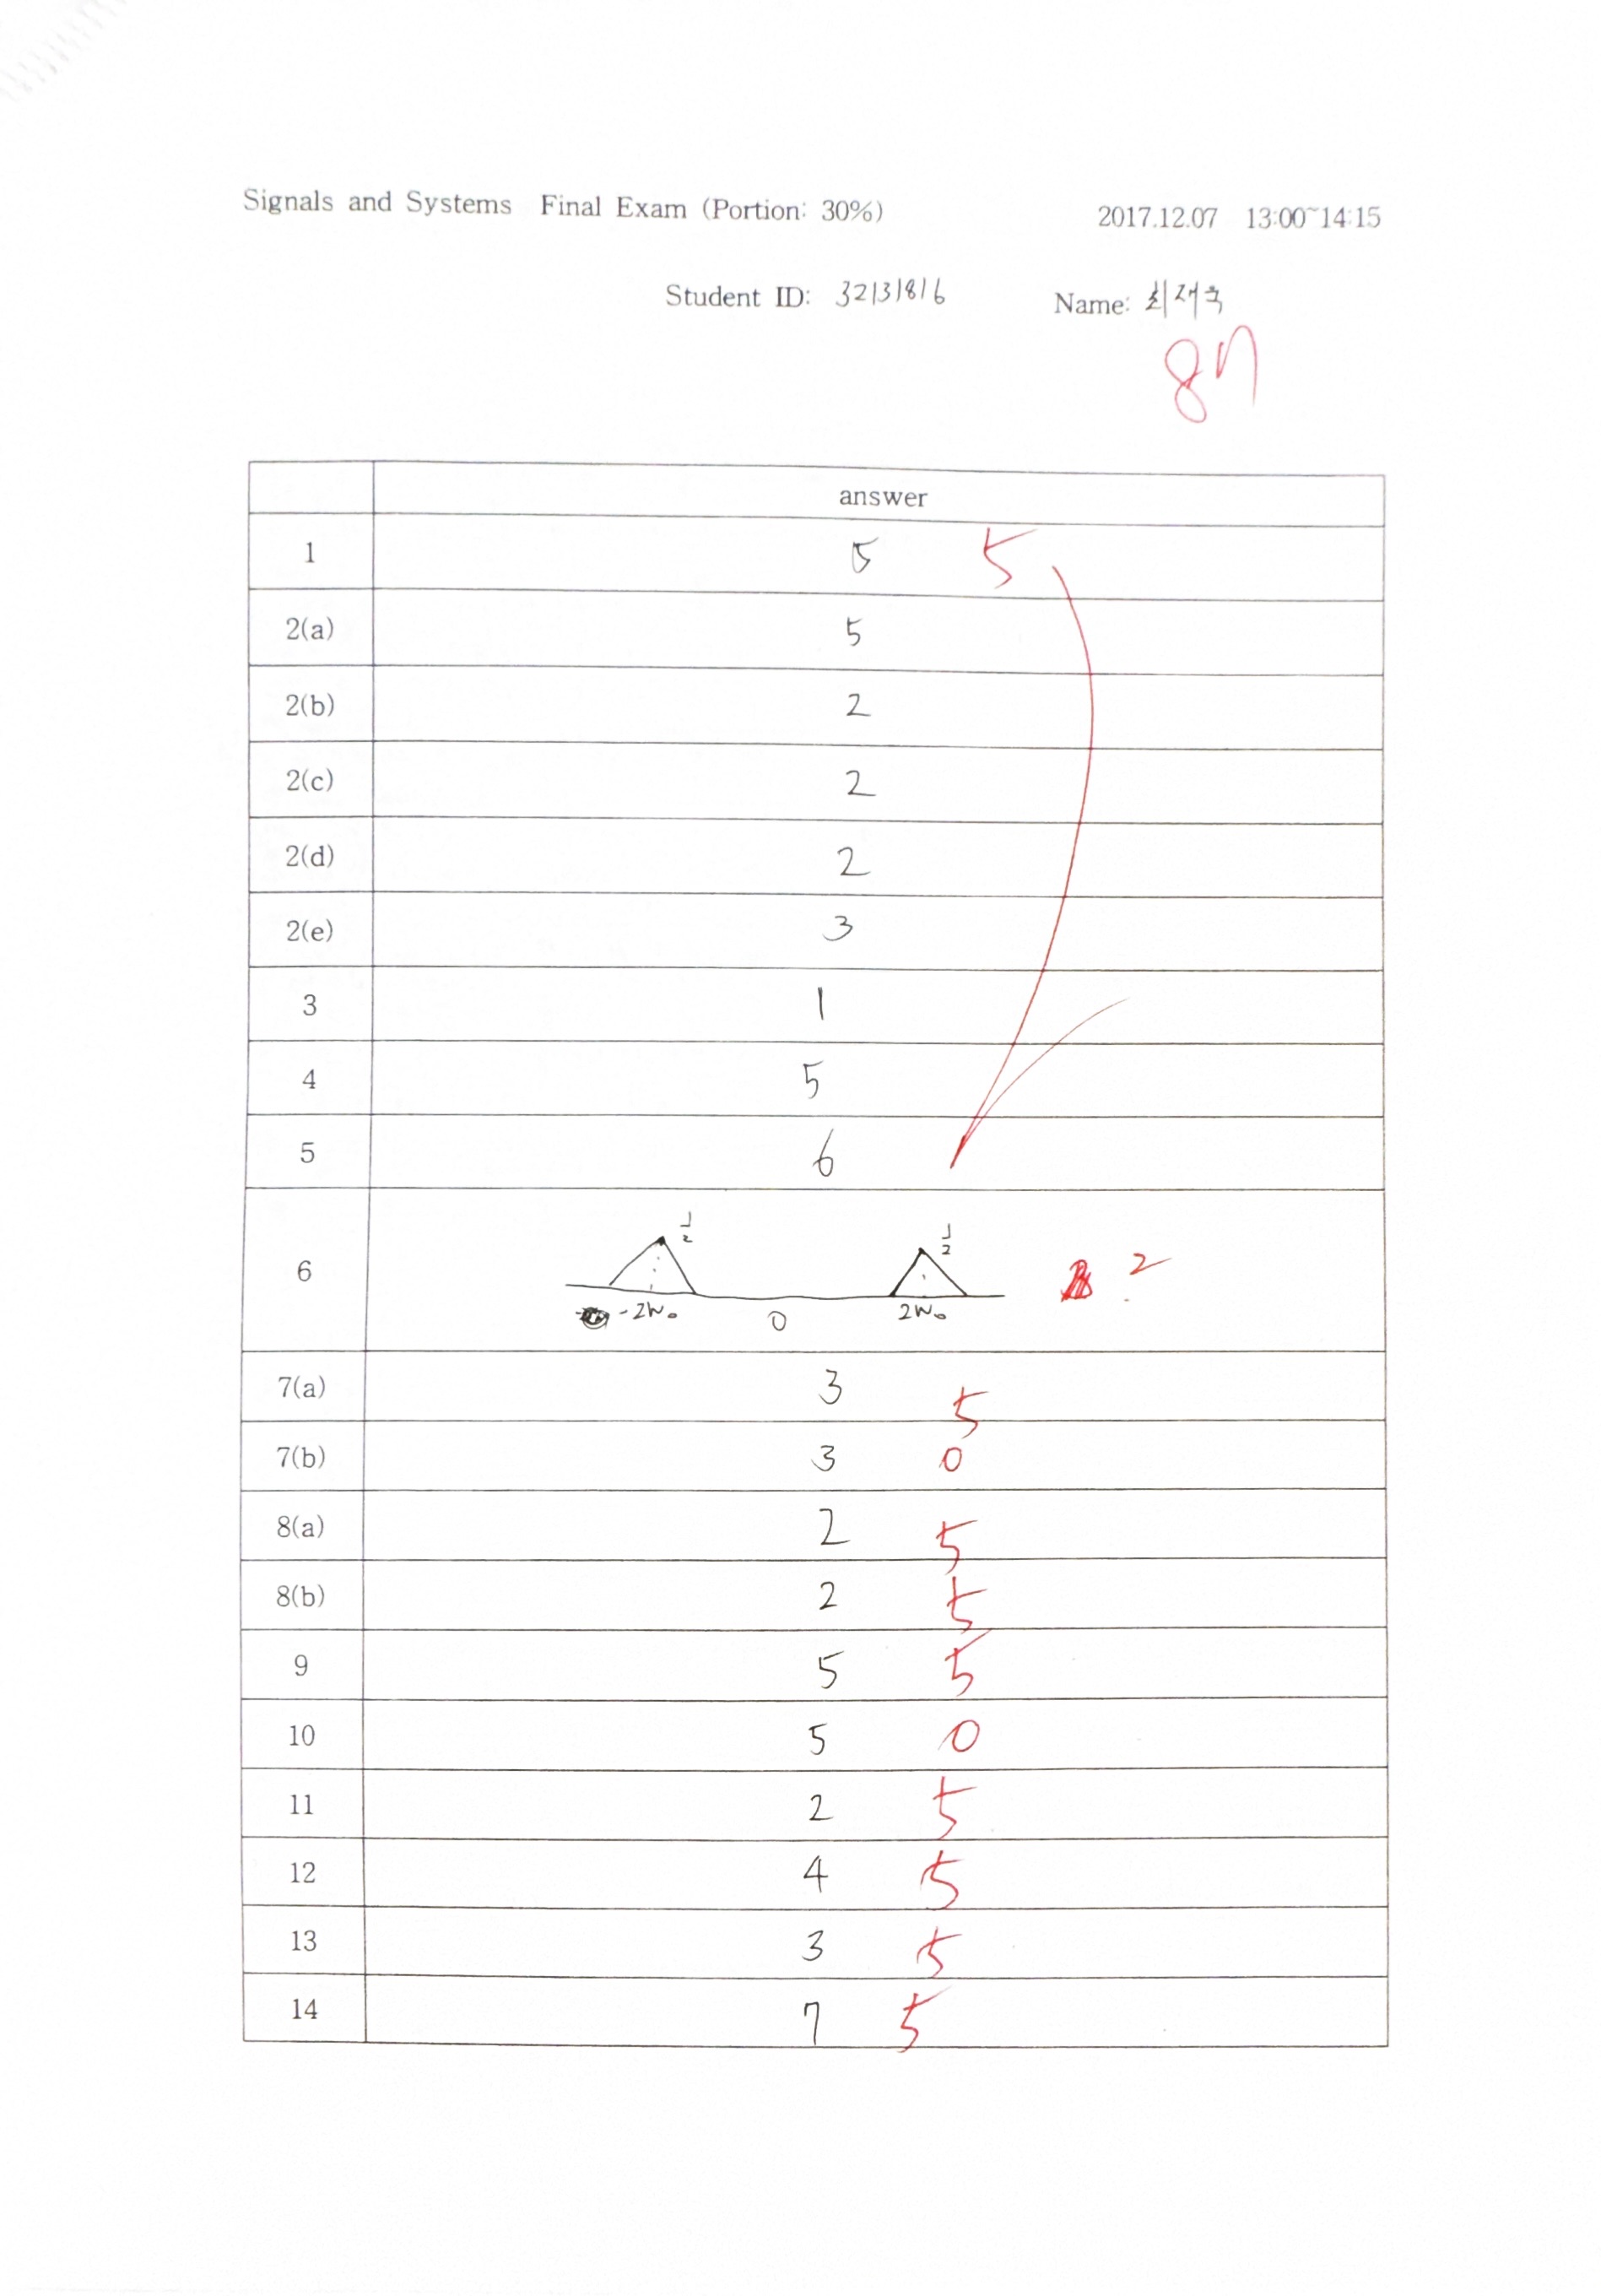 Signals and Systems Final Exam (Portion: 30%)
2017.12.07 13:00~14:15
Student ID: 32131816
Name: 최재욱
87
answer
1 5 5
2(a) 5
2(b) 2
2(c) 2
2(d) 2
2(e) 3
3 1
4 5
5 6
6 1/2 1/2 2
-2W₀ 0 2W₀
7(a) 3 5
7(b) 3 0
8(a) 2 5
8(b) 2 5
9 5 5
10 5 0
11 2 5
12 4 5
13 3 5
14 7 5